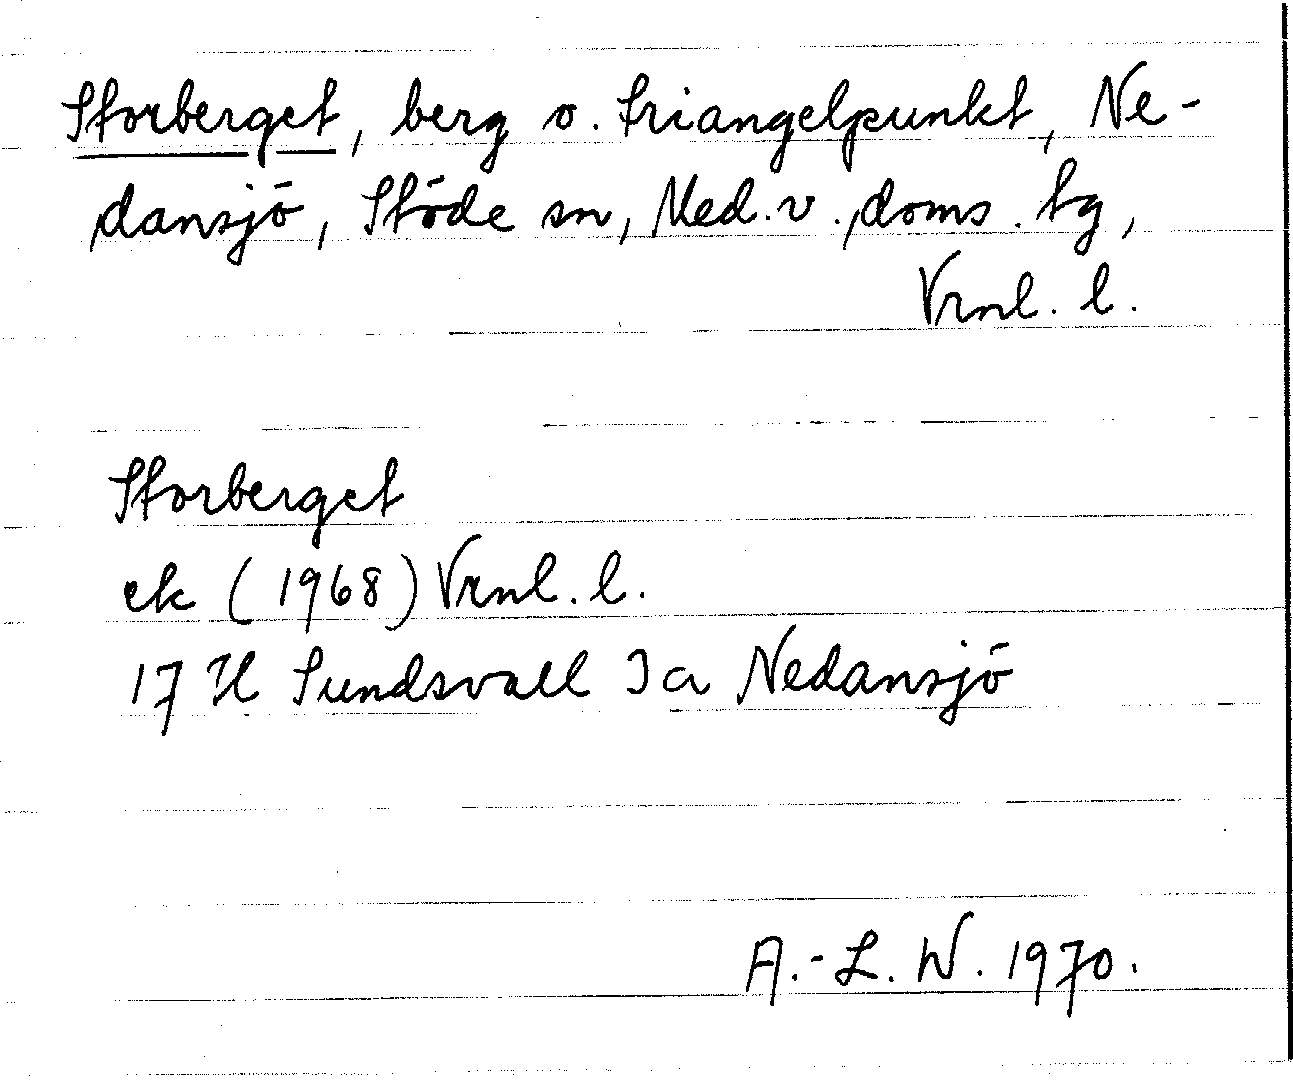 Storberget, berg o. triangelpunkt, Ne-
dansjö, Stöde sn, Med. v. doms. tg,
Vrnl. l.
Storberget
ek (1968) Vrnl. l.
17 H Sundsvall 3 a Nedansjö
A.-L. W. 1970.